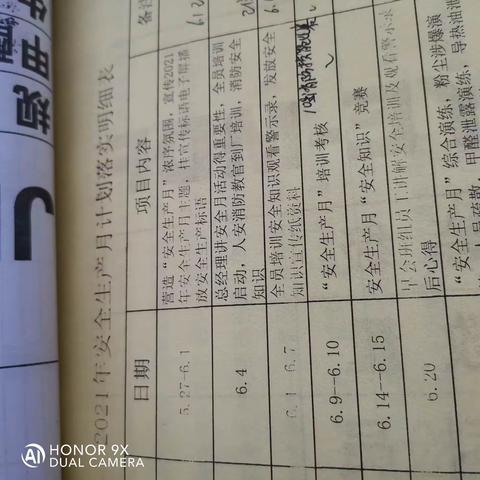 2021年安全生产月计划落实明细表
日期
项目内容
备注
5.27-6.1
营造“安全生产月”浓序氛围，宣传2021
年安全生产月主题，主宣传标语电子屏播
放安全生产标语
6.4
总经理讲安全月活动得重要性，全员培训
启动，人安消防教官到厂培训，消防安全
知识
6.1--6.7
全员培训安全知识观看警示录，发放安全
知识宣传纸资料
6.9--6.10
“安全生产月”培训考核
6.14--6.15
安全生产月“安全知识”竞赛
6.20
早会班组员工讲解安全培训及观看警示录
后心得
“安全生产月”综合演练，粉尘涉爆演
甲醛泄露演练，导热油泄
规
J
HONOR 9X
DUAL CAMERA